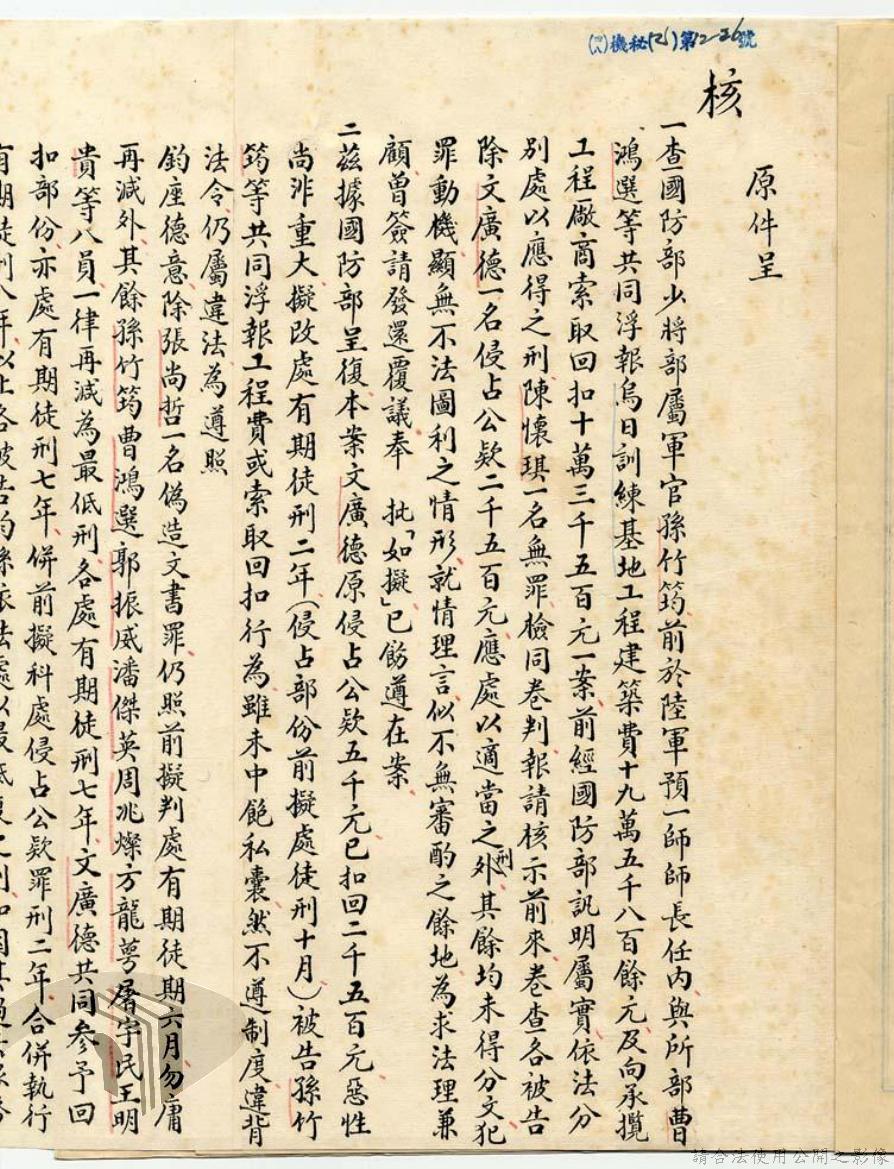 (四八)機秘(乙)第12-26號
核
原件呈
一查國防部少將部屬軍官孫竹筠前於陸軍預一師師長任內與所部曹
鴻選等共同浮報烏日訓練基地工程建築費十九萬五千八百餘元及向承攬
工程廠商索取回扣十萬三千五百元一案前經國防部訊明屬實依法分
別處以應得之刑陳懷琪一名無罪檢同卷判報請核示前來卷查各被告
除文廣德一名侵占公款二千五百元應處以適當之刑外其餘均未得分文犯
罪動機顯無不法圖利之情形就情理言似不無審酌之餘地為求法理兼
顧曾簽請發還覆議奉 批「如擬」已飭遵在案
二茲據國防部呈復本案文廣德原侵占公款五千元已扣回二千五百元惡性
尚非重大擬改處有期徒刑二年(侵占部份前擬處徒刑十月)被告孫竹
筠等共同浮報工程費或索取回扣行為雖未中飽私囊然不遵制度違背
法令仍屬違法為遵照
鈞座德意除張尚哲一名偽造文書罪仍照前擬判處有期徒期六月勿庸
再減外其餘孫竹筠曹鴻選郭振威潘傑英周兆燦方龍萼屠宇民王明
貴等八員一律再減為最低刑各處有期徒刑七年文廣德共同參予回
扣部份亦處有期徒刑七年併前擬科處侵占公款罪刑二年合併執行
有期徒刑八年以上各被告均係依法處以最低度之刑
請合法使用公開之影像